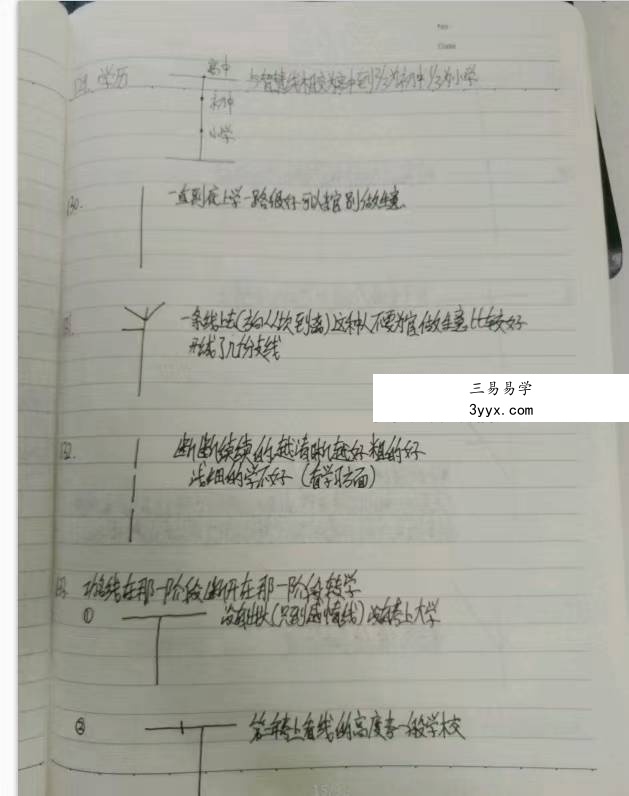 No:
Date:
129. 学历
高中
与智慧线相交为高中到2/3为初中 1/3为小学
初中
小学
130.
一直到底上学一路很好可以考官别做生意
131.
一条线上去(方向从坎到离)这种人不要为官做生意比较好
形成了几份支线
三易易学
3yyx.com
132.
断断续续的越清晰越好粗的好
浅细的学不好(看学历方面)
133. 功名线在那一阶段断开在那一阶段转学
①
没有出头(只到感情线)没有考上大学
②
第二年考上看线的高度考一般学校